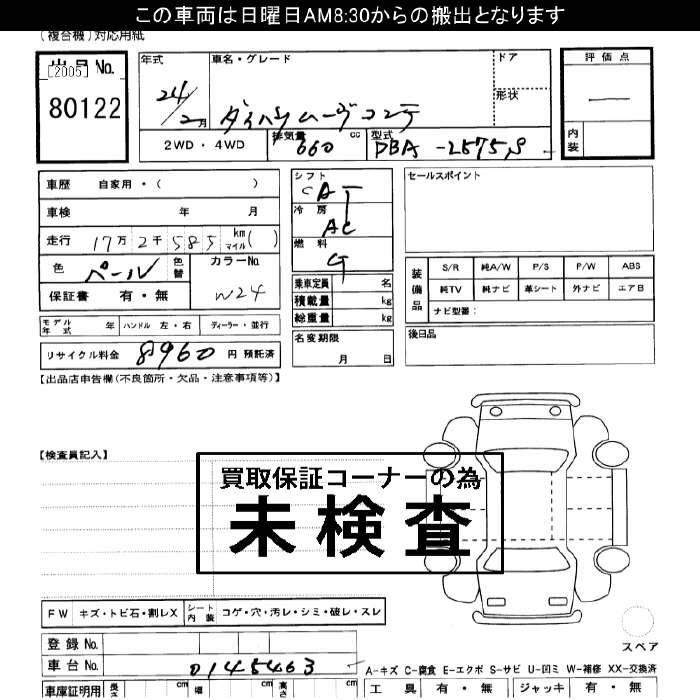 この車両は日曜日AM8:30からの搬出となります
(複合機)対応用紙
出品No.
[2005]
80122
年式
24/2月
車名・グレード
ダイハツムーヴコンテ
ドア
形状
評価点
内装
2WD・4WD
排気量
660
cc
型式
DBA-L575S
車歴 自家用・( )
車検 年 月
走行 17万2千585 km マイル( )
色 パール 色替
カラーNo.
W24
保証書 有・無
モデル年式 年 ハンドル 左・右 ディーラー・並行
リサイクル料金 8960 円 預託済
シフト
CAT
冷房
AC
燃料
G
乗車定員 名
積載量 kg
総重量 kg
名変期限
月 日
セールスポイント
装備品
S/R 純A/W P/S P/W ABS
純TV 純ナビ 革シート 外ナビ エアB
ナビ型番:
後日品
【出品店申告欄(不良箇所・欠品・注意事項等)】
【検査員記入】
買取保証コーナーの為
未検査
FW キズ・トビ石・割レX シート内装 コゲ・穴・汚レ・シミ・破レ・スレ
スペア
登録No.
車台No. 0145463
A-キズ C-腐食 E-エクボ S-サビ U-凹ミ W-補修 XX-交換済
車庫証明用 長さ cm 幅 cm 高さ cm
工具 有・無 ジャッキ 有・無